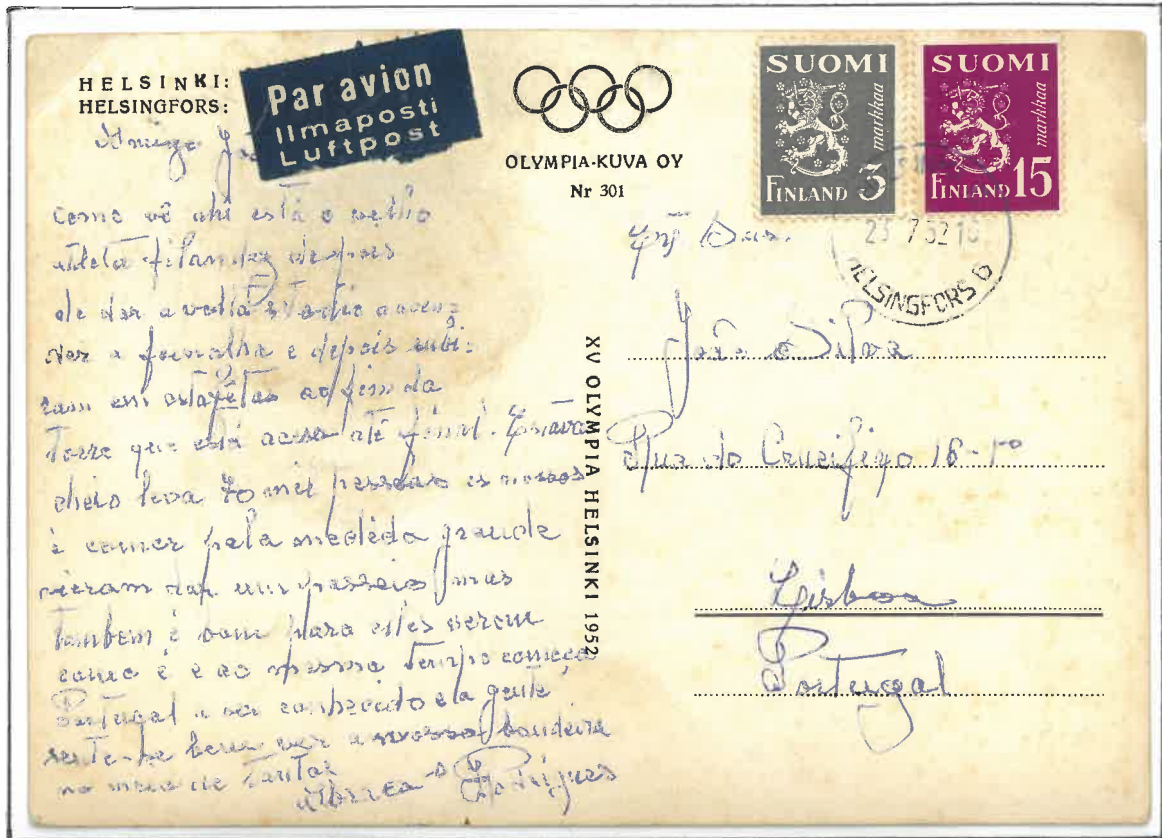 HELSINKI:
HELSINGFORS:
Par avion
Ilmaposti
Luftpost
OLYMPIA-KUVA OY
Nr 301
SUOMI
markkaa
FINLAND 3
SUOMI
markkaa
FINLAND 15
23 7.52 16
HELSINGFORS
XV OLYMPIA HELSINKI 1952
Amigo
como vê ahi está o velho
atleta filandez depois
de dar a volta stadio acen=
der a fornalha e depois subi=
ram em estafetas ao fim da
Torre que está acesa até final. Estava
cheio leva 70 mil pessoas os nossos
é comer pela medida grande
vieram dar um passeio mas
tambem é bom para eles verem
como é e ao mesmo tempo começa
Portugal a ser conhecido e a gente
sente-se bem ver a nossa bandeira
no meio de tantas
Abraça o Rodrigues
João Silva
Rua do Crucifixo 16-1º
Lisboa
Portugal